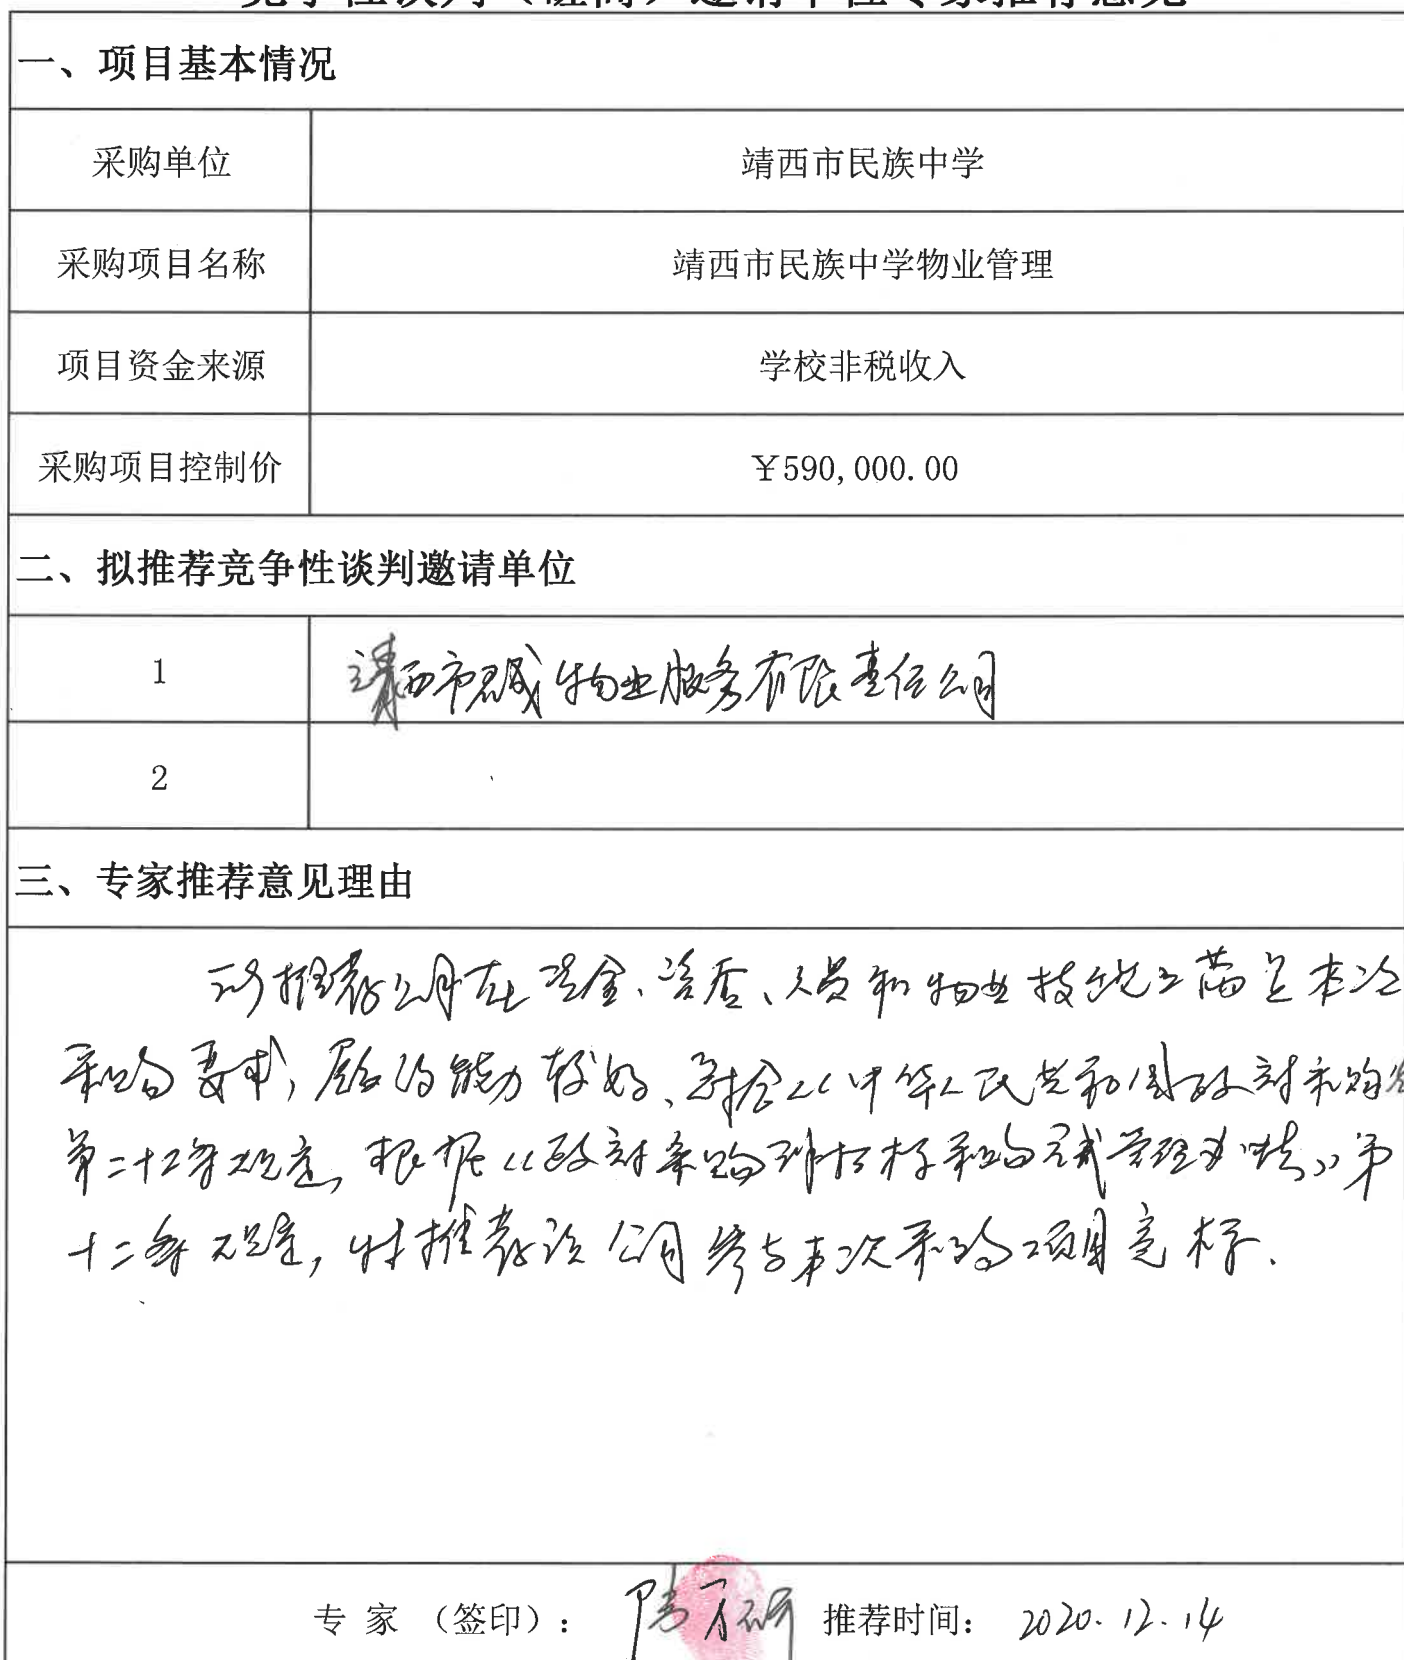 竞争性谈判（磋商）邀请单位专家推荐意见
一、项目基本情况
采购单位 靖西市民族中学
采购项目名称 靖西市民族中学物业管理
项目资金来源 学校非税收入
采购项目控制价 ￥590,000.00
二、拟推荐竞争性谈判邀请单位
1 靖西市 物业服务有限责任公司
2
三、专家推荐意见理由
所推荐公司在资金、资质、人员和物业技术上满足本次
采购要求，履约能力较好、符合《中华人民共和国政府采购法
第二十二条规定，根据《政府采购非招标采购方式管理办法》第
十二条规定，特推荐该公司参与本次采购项目竞标.
专 家 （签印）： 推荐时间： 2020.12.14